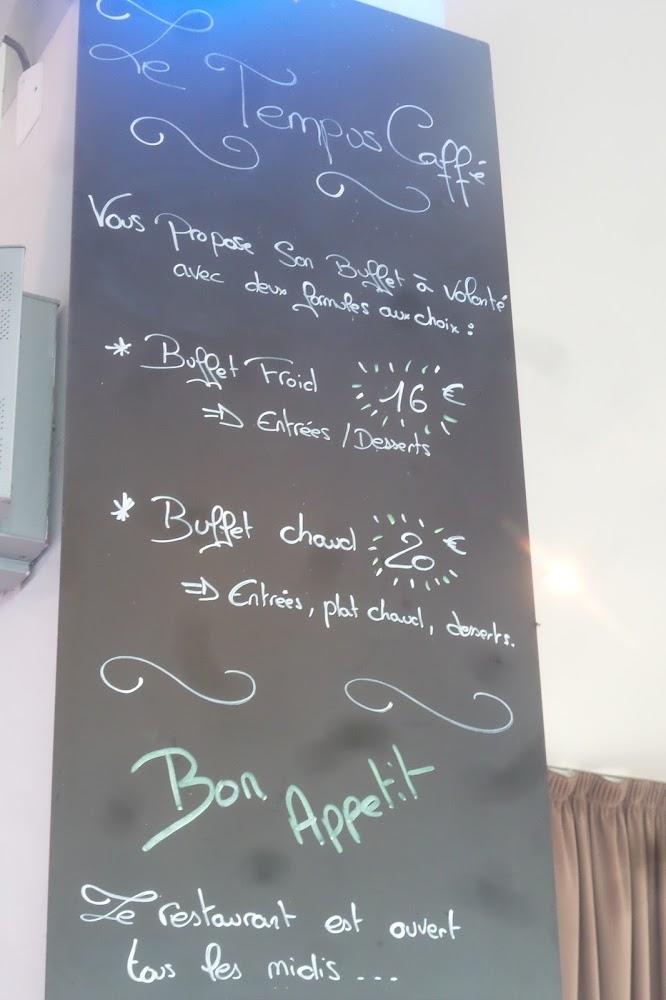 Le Tempus Caffé
Vous Propose Son Buffet à Volonté
avec deux formules aux choix :
* Buffet Froid 16 €
⇒ Entrées / Desserts
* Buffet chaud 20 €
⇒ Entrées, plat chaud, desserts.
Bon Appetit
Le restaurant est ouvert
tous les midis ...